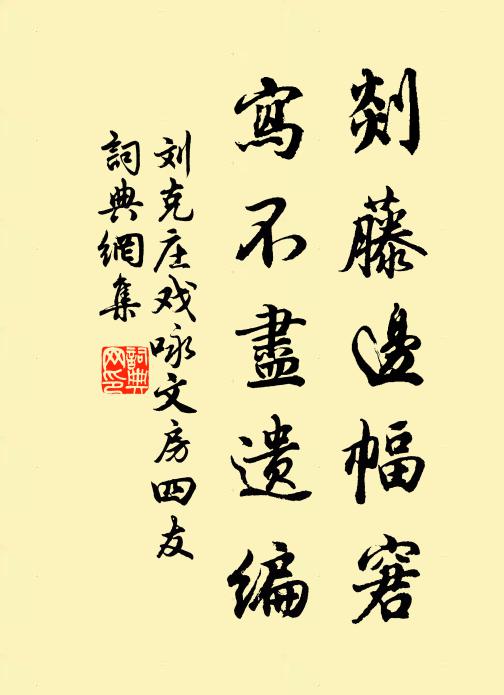 剡藤邊幅窘
寫不盡遺編
刘克庄戏咏文房四友
詞典網集
詞典网印